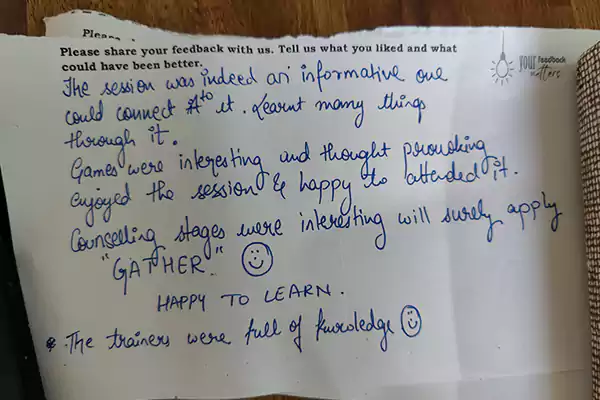 Please
Please share your feedback with us. Tell us what you liked and what
could have been better.
your feedback
matters
The session was indeed an informative one
could connect to it. Learnt many things
through it.
Games were interesting and thought provoking
enjoyed the session & happy to attended it.
Counselling stages were interesting will surely apply
"GATHER"
HAPPY TO LEARN.
* The trainers were full of knowledge